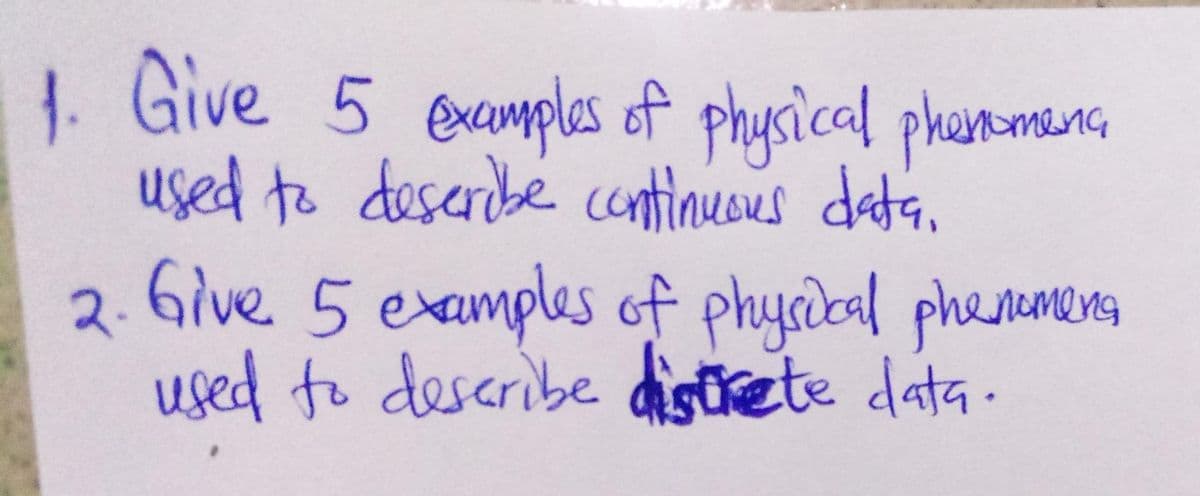 1. Give 5 examples of physical phenomena
used to describe continuous data.
2. Give 5 examples of physical phenomena
used to describe discrete data.